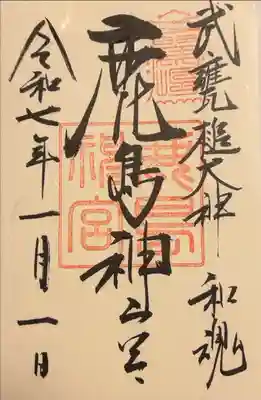 武甕槌大神 和魂
鹿島神宮
令和七年一月一日
鹿島
神宮